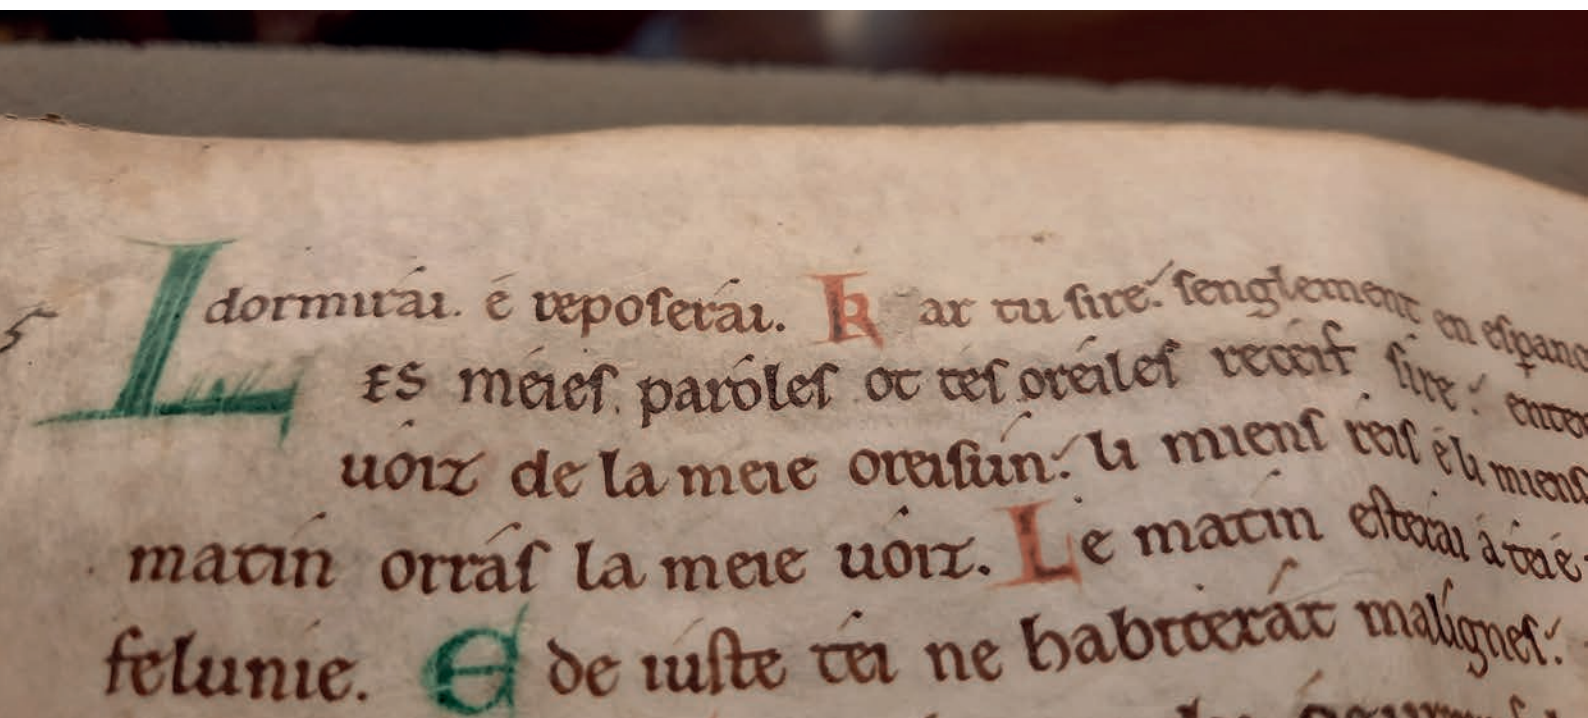 5
dormirái. é reposerái. Kar tu sire. senglement en
LES méies paróles ot tes oréiles receif sire.
uóiz de la meie oreisún. li miens reis é li miens
matín orrás la meie uóiz. Le matín esterai á téié
felunie. E de iúste téi ne habiterát malígnes.